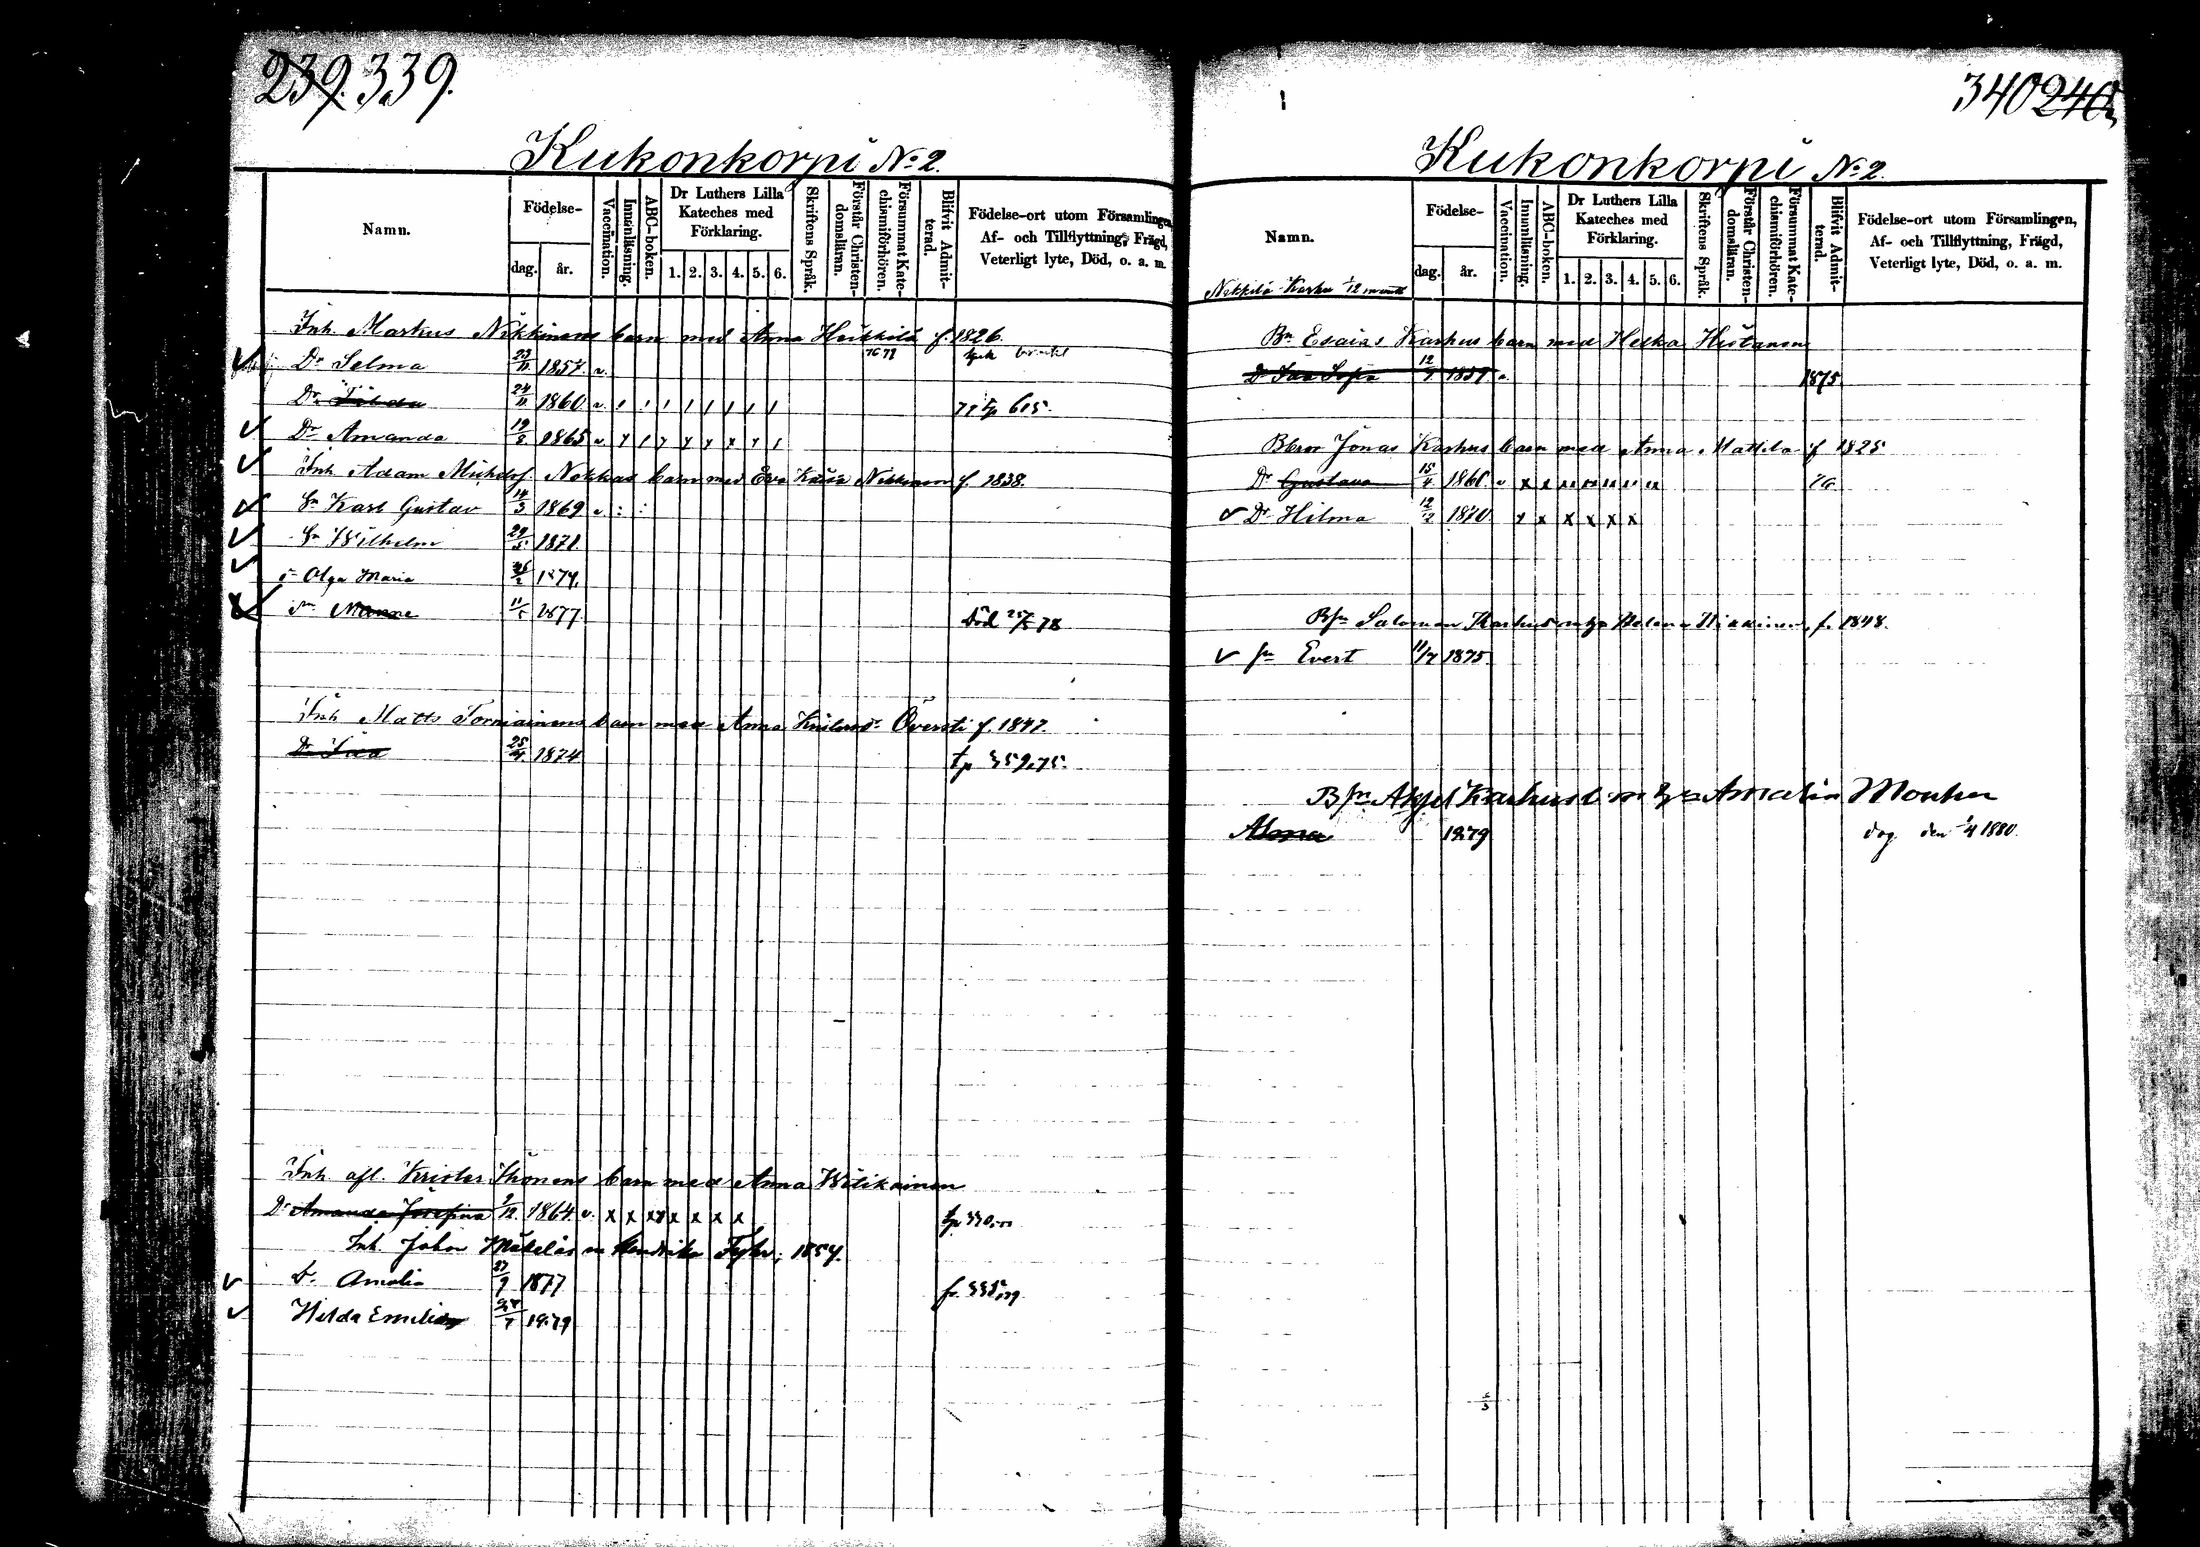 239. 339.
Kukonkorpi No 2.
Namn.
Födelse-
dag. år.
Vaccination.
Innanläsning.
ABC-boken.
Dr Luthers Lilla Kateches med Förklaring.
1. 2. 3. 4. 5. 6.
Skriftens Språk.
Förstår Christendomsläran.
Försummat Katechismiförhören.
Blifvit Admitterad.
Födelse-ort utom Församlingen,
Af- och Tillflyttning, Frägd,
Veterligt lyte, Död, o. a. m.
Inh. Markus Nikkinens barn med Anna Heikkilä f. 1826.
Dr Selma 23/11 1857 v.
Dr 24/11 1860 v. / / / / / / / / 615.
Dr Amanda 19/8 1865 v
Inh Adam Nokkas barn med Eva Kaisa Nikkinen f. 1838.
Sn Karl Gustav 14/3 1869 v : :
Sn Wilhelm 1871.
Olga Maria 1874.
Manne 11/5 1877 Död 25/5 78
Inh Matts Torniainens barn med Anna Översti f. 1847.
Dr Ida 25/4 1874 tp 359.75.
Inh afl. Krister Ihonens barn med Anna Witikainen
Dr Amanda Josefina 9/12 1864 v. x x x x x x x x
Inh. Johan Mäkeläs m Hendrika 1854.
Dr. Amalia 27/9 1877
Hilda Emilia 1879
340 240
Kukonkorpi No 2.
Namn.
Nikkilä Karhu 1/12 mantl
Födelse-
dag. år.
Vaccination.
Innanläsning.
ABC-boken.
Dr Luthers Lilla Kateches med Förklaring.
1. 2. 3. 4. 5. 6.
Skriftens Språk.
Förstår Christendomsläran.
Försummat Katechismiförhören.
Blifvit Admitterad.
Födelse-ort utom Församlingen,
Af- och Tillflyttning, Frägd,
Veterligt lyte, Död, o. a. m.
Bn Esaias Karhus barn med Helka Hietanen
Dr Ida Sofia 12/9 1859 v 1875
Bbror Jonas Karhus barn med Anna Mattila f 1825
Dr Gustava 15/4 1860 v
Dr Hilma 12/12 1870 x x x x x x
Bsn Salomon Karhus Helena Nikkinen, f. 1848.
sn Evert 11/7 1875.
Bsn Axel Karhus b. m Amalia
Alma 1879 den 1/4 1880.